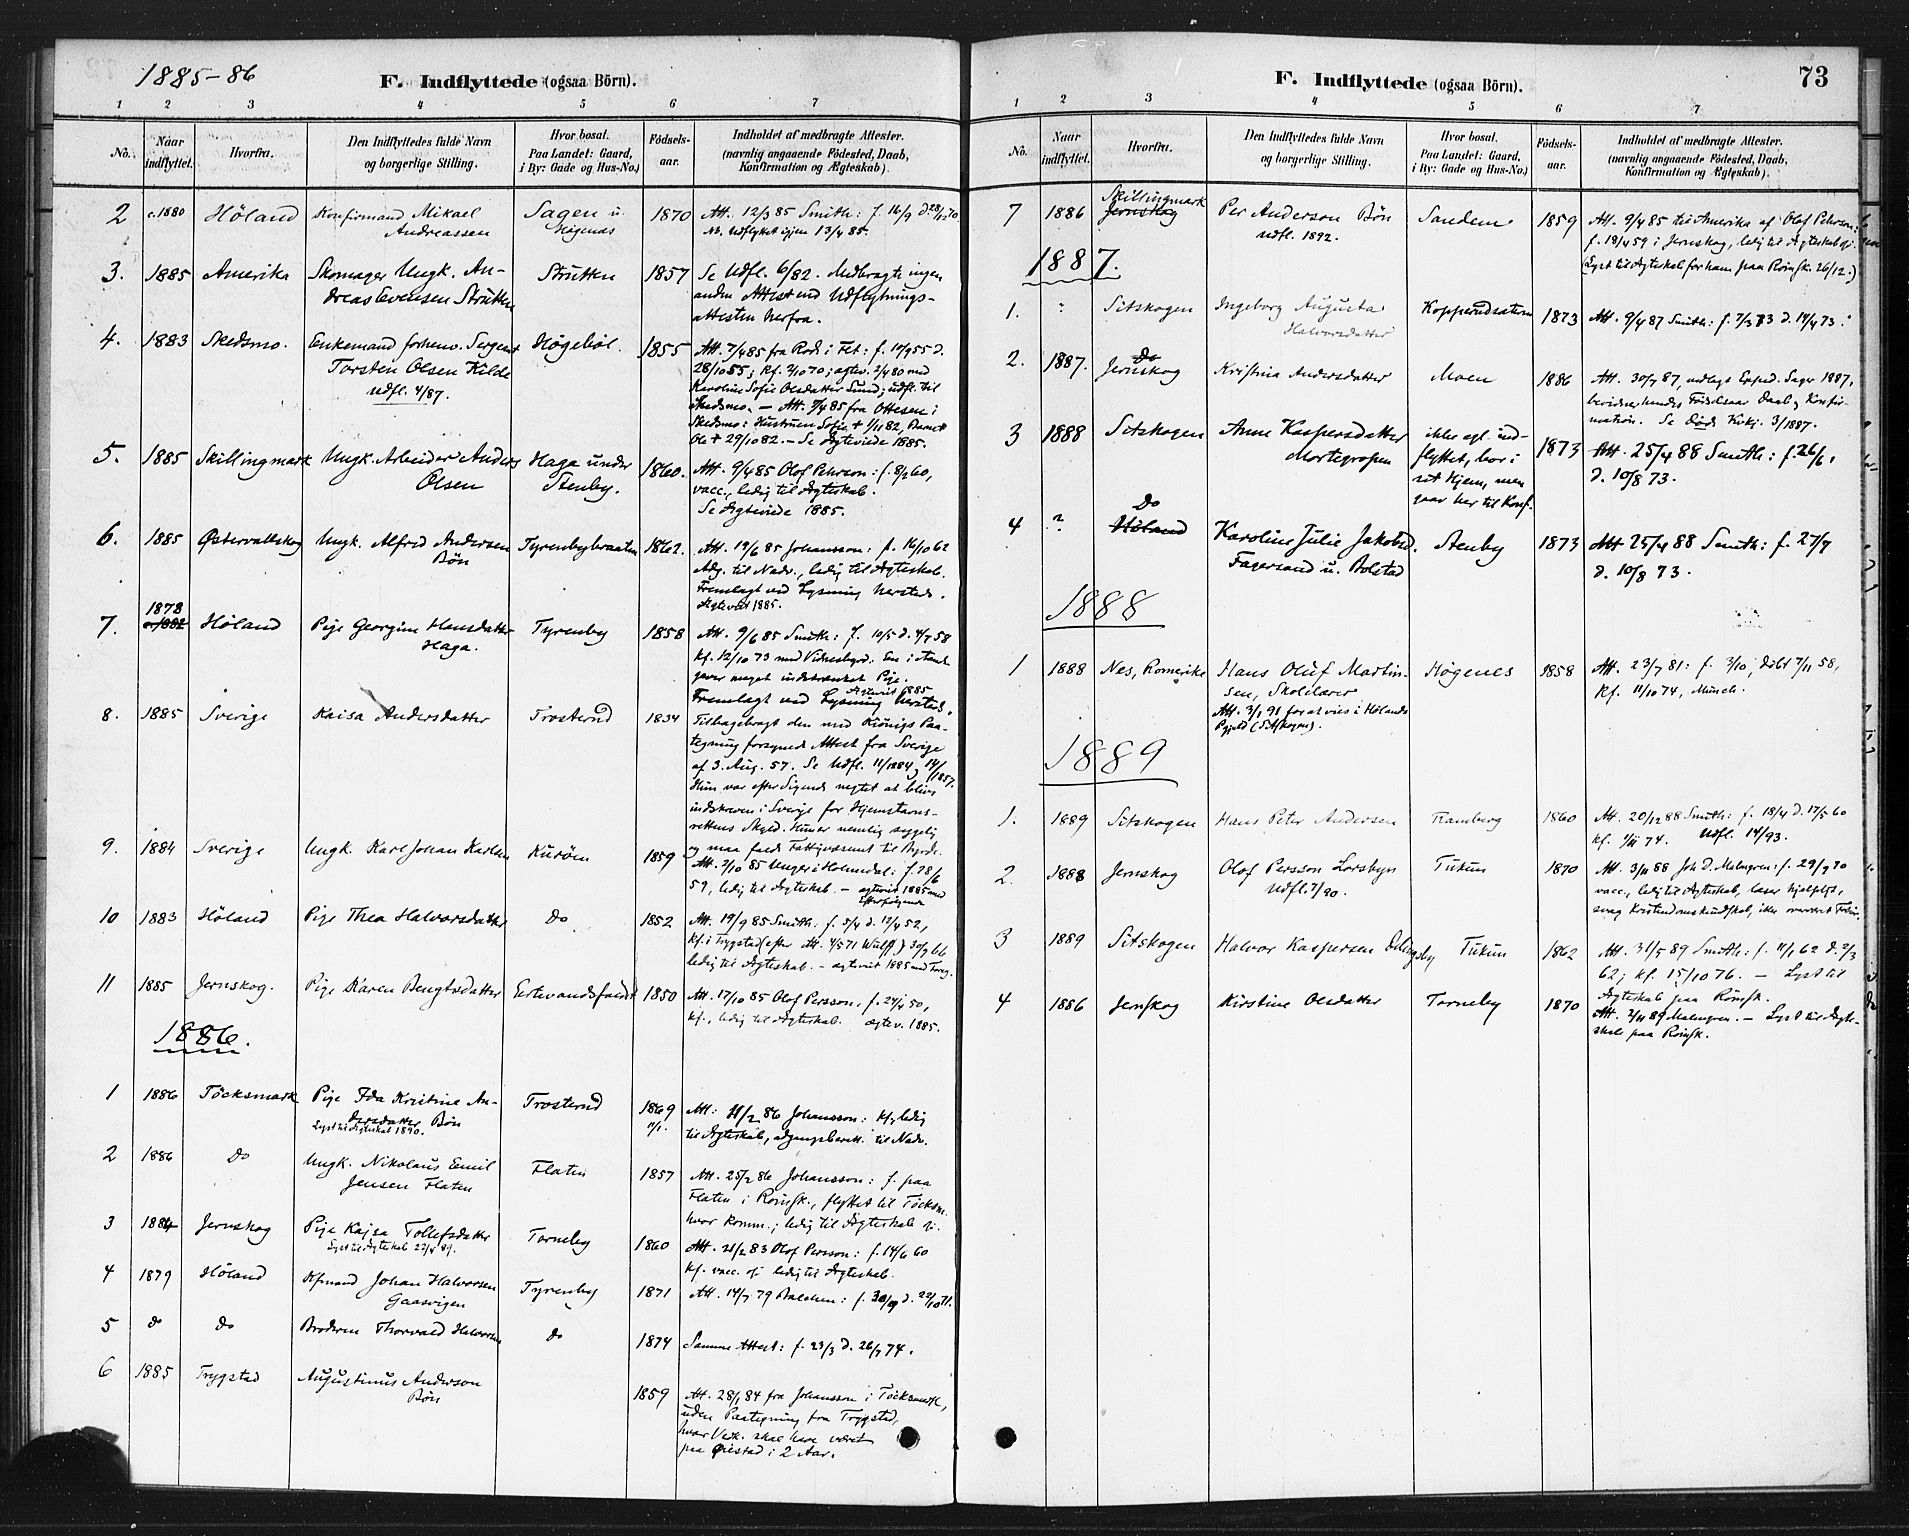 1885-86
F. Indflyttede (ogsaa Börn).
1 2 3 4 5 6 7
No.
Naar indflyttet.
Hvorfra.
Den Indflyttedes fulde Navn
og borgerlige Stilling.
Hvor bosat.
Paa Landet: Gaard,
i By: Gade og Hus-No.)
Födsels-
aar.
Indholdet af medbragte Attester.
(navnlig angaaende Födested, Daab,
Konfirmation og Ægteskab).
2 c. 1880 Höland Konfirmand Mikael Sagen u. 1870 Att. 12/3 85 Smith: f. 16/9 d. 28/12 70
Andreassen Högenæs Nb. Udflyttet igjen 13/4 85.
3. 1885 Amerika Skomager Ungk. An- Strütten 1857 Se Udfl. 6/82. Medbragte ingen
dreas Evensen Strütten anden Attest end Udflytnings-
attesten herfra.
4. 1883 Skedsmo. Enkemand forhenv. Sergent Högeböl. 1855 Att. 7/4 85 fra Rode i Fet: f. 10/9 55 d.
Torsten Olsen Kilde 28/10 55; kf. 2/10 70; ægtev. 2/4 80 med
udfl. 4/87. Karoline Sofie Olsdatter Sund; udfl. til
Skedsmo. – Att. 7/4 85 fra Ottesen i
Skedsmo: Hustruen Sofie + 1/11 82, Barnet
Ole + 29/10 82. – Se Ægteviede 1885.
5. 1885 Skillingmark Ungk. Arbeider Anders Haga under 1860. Att. 9/4 85 Olof Pehrson: f. 8/2 60,
Olsen Stenby. vacc., ledig til Ægteskab.
Se Ægteviede 1885.
6. 1885 Østervallskog Ungk. Alfred Andersen Tyrenbybraaten 1862. Att. 19/6 85 Johansson: f. 16/10 62
Bön Adg. til Nadv., ledig til Ægteskab.
Fremlagt ved Lysning hersteds.
Ægteviet 1885.
1878
7. c. 1882 Höland Pige Georgine Hansdatter Tyrenby 1858 Att. 9/6 85 Smith: f. 10/5 d. 4/7 58
Haga. kf. 12/10 73 med Vidnesbyrd. En i Aands
gaver meget indskrænket Pige.
Ægteviet 1885
Fremlagt ved Lysning hersteds.
8. 1885 Sverige Kaisa Andersdatter Trosterud 1834 Tilbagebragt den med Königs Paa-
tegning forsynede Attest fra Sverige
af 3. Aug. 57. Se Udfl. 11/1884, 14/1857.
Hun var efter Sigende negtet at blive
indskreven i Sverige for Hjemstavns-
rettens Skyld. Hun er nemlig sygelig
og maa falde Fattigvæsenet til Byrde.
9. 1884 Sverige Ungk. Karl Johan Karlsen Kuröen 1859 Att. 2/10 85 Unger i Holmedal: f. 28/6
59, ledig til Ægteskab. – ægteviet 1885 med
Efterfølgende
10 1883 Höland Pige Thea Halvorsdatter Do 1852 Att. 19/9 85 Smith: f. 5/4 d. 12/4 52,
kf. i Trygstad (efter Att. 4/5 71 Wulff) 30/9 66
ledig til Ægteskab. – ægteviet 1885 med Foreg.
11 1885 Jernskog. Pige Karen Bengtsdatter Ertevandsfaldet 1850 Att. 17/10 85 Olof Persson, f. 24/1 50,
kf., ledig til Ægteskab. ægtev. 1885.
1886.
1 1886 Töcksmark Pige Ida Kristine An- Trosterud 1869 Att: 11/2 86 Johansson: kf, ledig
dersdatter Bön 11/1. til Ægteskab, adgangsberett. til Nadv.
Lyst til Ægteskab 1890.
2 1886 Do Ungk. Nikolaus Emil Flaten 1857 Att. 25/2 86 Johansson: f. paa
Jensen Flaten Flaten i Römsk., flyttet til Töcksm.
hvor komm.; ledig til Ægteskab
3 1884 Jernskog Pige Kajsa Tollefsdatter Torneby 1860 Att. 21/2 83 Olof Persson: f. 14/6 60
Lyst til Ægteskab 22/4 89. kf. vacc. ledig til Ægteskab.
4 1879 Höland Kfmand Johan Halvorsen Tyrenby 1871 Att. 14/7 79 Balchen: f. 30/9 d. 22/10 71.
Gaasvigen
5 Do Do Broderen Thorvald Halvorsen Do 1874 Samme Attest: f. 23/3 d. 26/7 74.
6 1885 Trygstad Augustinus Anderson 1859 Att. 28/1 84 fra Johansson i Töcksmark,
Bön uden Paategning fra Trygstad,
hvor Vedk. skal have været
paa Ørestad i 2 Aar.
F. Indflyttede (ogsaa Börn). 73
1 2 3 4 5 6 7
No.
Naar indflyttet.
Hvorfra.
Den Indflyttedes fulde Navn
og borgerlige Stilling.
Hvor bosat.
Paa Landet: Gaard,
i By: Gade og Hus-No.)
Födsels-
aar.
Indholdet af medbragte Attester.
(navnlig angaaende Födested, Daab,
Konfirmation og Ægteskab).
Skillingmark
7 1886 Jernskog Per Anderson Bön Sandem 1859 Att. 9/4 85 til Amerika af Olof Pehrson:
udfl. 1892. f. 18/4 59 i Jernskog, ledig til Ægteskab
(Lyst til Ægteskab for ham paa Römsk. 26/12.)
1887.
1. " Sitskogen Ingeborg Augusta Kopperudsætern 1873 Att. 9/4 87 Smith: f. 7/3 73 d. 14/4 73.
Halvorsdatter
2. 1887. Do Jernskog Kristina Andersdatter Moen 1886 Att. 30/7 87, vedlagt Exped. Sager 1887,
bevidner hendes Födselsaar Daab, Konfir-
mation. Se Död. Kvkj. 3/1887.
3 1888 Sitskogen Anne Kaspersdatter ikke egl. ind- 1873 Att. 25/4 88 Smith: f. 26/6
Mortegropen flyttet, bor i d. 10/8 73.
sit Hjem, men
gaar her til Konf.
Do
4 ? Höland Karoline Julie Jakobsd. Stenby 1873 Att 25/4 88 Smith: f. 27/7
Fagersand u. Bolstad d. 10/8 73.
1888
1 1888 Nes, Romerike Hans Oluf Martin- Högenes 1858 Att. 23/7 81: f. 3/10, döbt 7/11 58,
sen, Skolelærer kf. 11/10 74, Münch.
Att. 3/1 91 for at vies i Hölands
Pgjeld (Sitskogen).
1889
1. 1889 Sitskogen Hans Peter Andersen Ramberg 1860 Att. 20/12 88 Smith: f. 18/4 d. 17/5 60
kf. 1/11 74. Udfl. 14/93.
2. 1888 Jernskog Olof Persson Lorsbyn Tukun 1870 Att. 3/11 88 Joh D. Malmgren: f. 29/9 70
Udfl. 7/90. vacc., ledig til Ægteskab, læser hjælpligt,
svag Kristendomskundskab,
3 1889 Sitskogen Halvor Kaspersen Tukun 1862 Att. 31/5 89 Smith: f. 11/1 62 d. 2/3
62; kf. 15/10 76. – Lyst til
Ægteskab paa Römsk.
4 1886 Jernskog Kirstine Olsdatter Torneby 1870 Att. 2/11 89 Malmgren. – Lyst til Ægte-
skab paa Römsk.